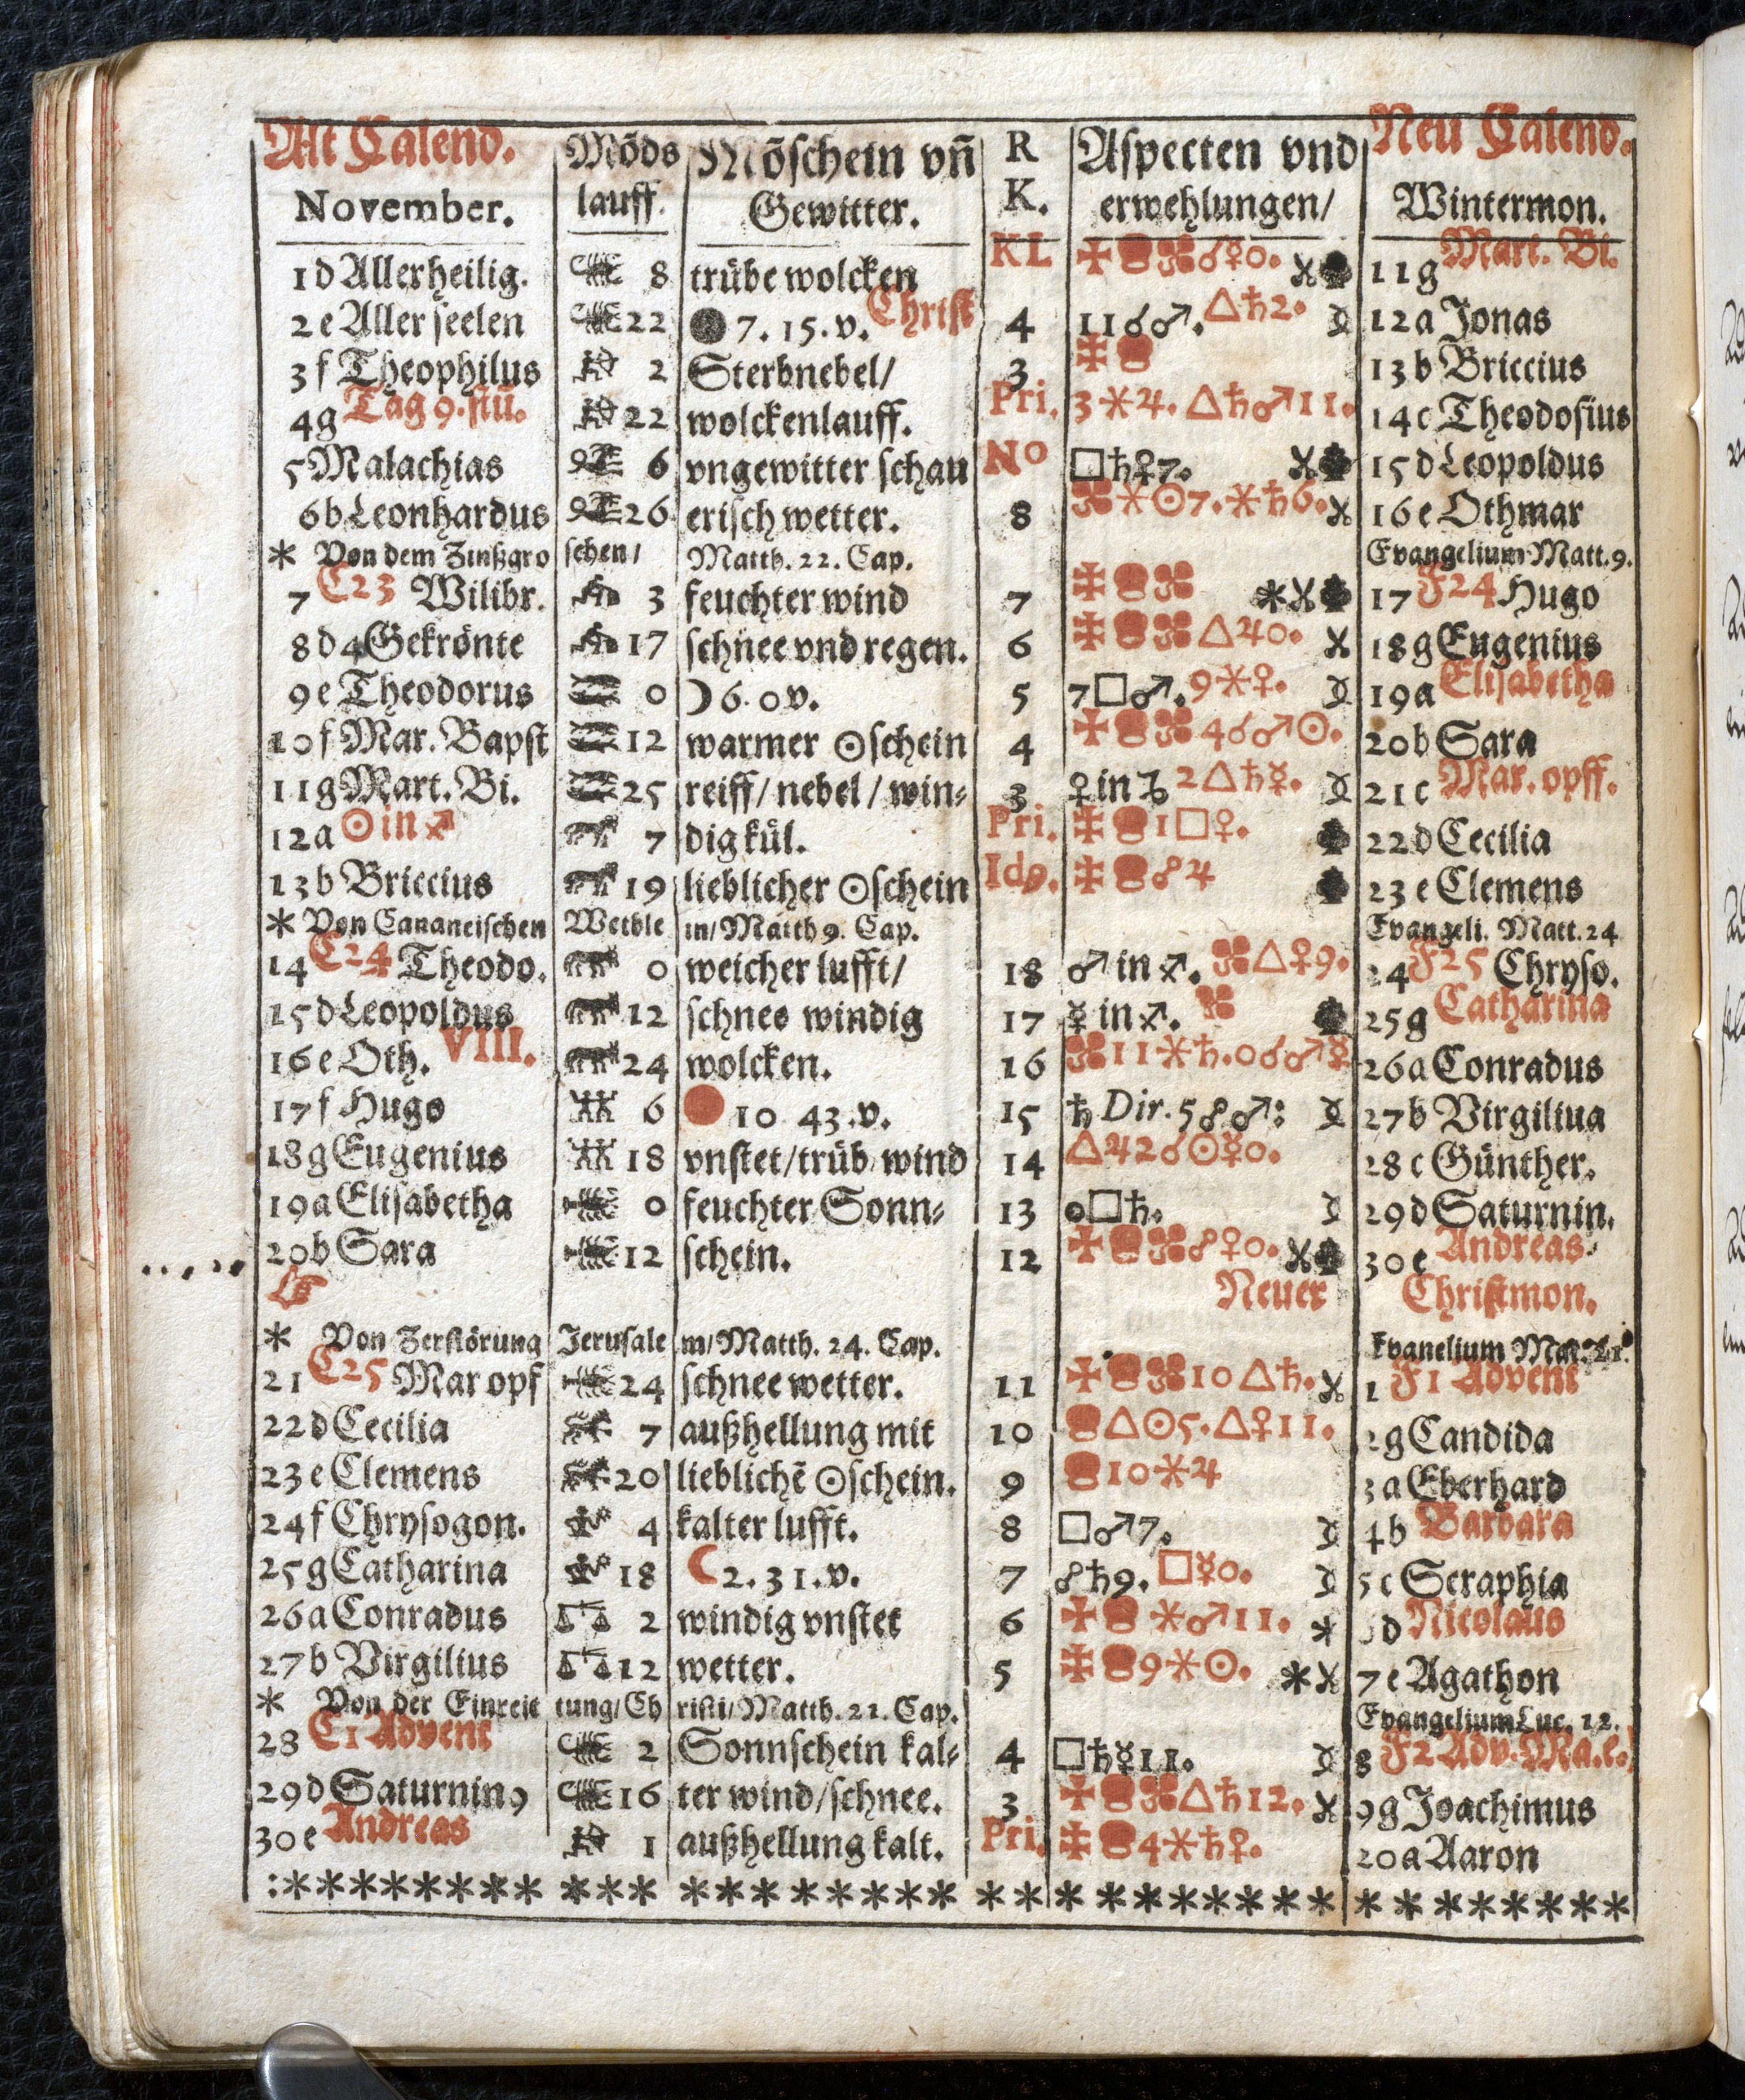 Alt Calend. Mõds Mõschein vñ R Aspecten vnd Neu Calend.
November. lauff. Gewitter. K. erwehlungen/ Wintermon.
1 d Allerheilig. 8 trübe wolcken KL ☌♀0. 11 g Mart. Bi.
2 e Aller seelen 22 ● 7. 15. v. Christ 4 11☌♂. △♄2. 12 a Jonas
3 f Theophilus 2 Sterbnebel/ 3 13 b Briccius
4 g Tag 9. stũ. 22 wolckenlauff. Pri. 3⚹♃. △♄♂11. 14 c Theodosius
5 Malachias 6 vngewitter schau No □♄♀7. 15 d Leopoldus
6 b Leonhardus 26 erisch wetter. 8 ⚹☉7. ⚹♄6. 16 e Othmar
* Von dem Zinßgro schen/ Matth. 22. Cap. Evangelium Matt. 9.
7 C23 Wilibr. 3 feuchter wind 7 17 F24 Hugo
8 d 4 Gekrönte 17 schnee vnd regen. 6 △♃0. 18 g Eugenius
9 e Theodorus 0 ☽ 6. 0 v. 5 7□♂. 9⚹♀. 19 a Elisabetha
10 f Mar. Bapst 12 warmer ☉schein 4 4☌♂☉. 20 b Sara
11 g Mart. Bi. 25 reiff/ nebel / win⸗ 3 ♀ in ♑ 2△♄☿. 21 c Mar. opff.
12 a ☉ in ♐ 7 dig kül. Pri. 1□♀. 22 d Cecilia
13 b Briccius 19 lieblicher ☉schein Id9. ☍♃ 23 e Clemens
* Von Cananeischen Weible in/ Matth 9. Cap. Evangeli. Matt. 24
14 C24 Theodo. 0 weicher lufft/ 18 ♂ in ♐. △♀9. 24 F25 Chryso.
15 d Leopoldus 12 schnee windig 17 ☿ in ♐. 25 g Catharina
16 e Oth. VIII. 24 wolcken. 16 11⚹♄. 0☌♂☿ 26 a Conradus
17 f Hugo 6 10 43. v. 15 ♄ Dir. 5☍♂: 27 b Virgilius
18 g Eugenius 18 vnstet/trüb wind 14 △♃2☌☉☿0. 28 c Günther.
19 a Elisabetha 0 feuchter Sonn⸗ 13 0□♄. 29 d Saturnin.
20 b Sara 12 schein. 12 ☍♀0. 30 e Andreas
☞ Neuer Christmon.
* Von Zerstörung Jerusale m/ Matth. 24. Cap. Evanelium Mat. 21.
21 C25 Mar opf 24 schnee wetter. 11 10△♄. 1 F1 Advent
22 d Cecilia 7 außhellung mit 10 △☉5. △♀11. 2 g Candida
23 e Clemens 20 lieblichẽ ☉schein. 9 10⚹♃ 3 a Eberhard
24 f Chrysogon. 4 kalter lufft. 8 □♂7. 4 b Barbara
25 g Catharina 18 ☾ 2. 31. v. 7 ☍♄9. □☿0. 5 c Seraphia
26 a Conradus 2 windig vnstet 6 ⚹♂11. * d Nicolaus
27 b Virgilius 12 wetter. 5 9⚹☉. * 7 e Agathon
* Von der Einreit tung/ Ch risti/ Matth. 21. Cap. Evangelium Luc. 12.
28 C1 Advent 2 Sonnschein kal⸗ 4 □♄☿11. 8 F2 Adv. Ma. e.
29 d Saturnin9 16 ter wind/schnee. 3 △♄12. 9 g Joachimus
30 e Andreas 1 außhellung kalt. Pri. 4⚹♄♀. 20 a Aaron